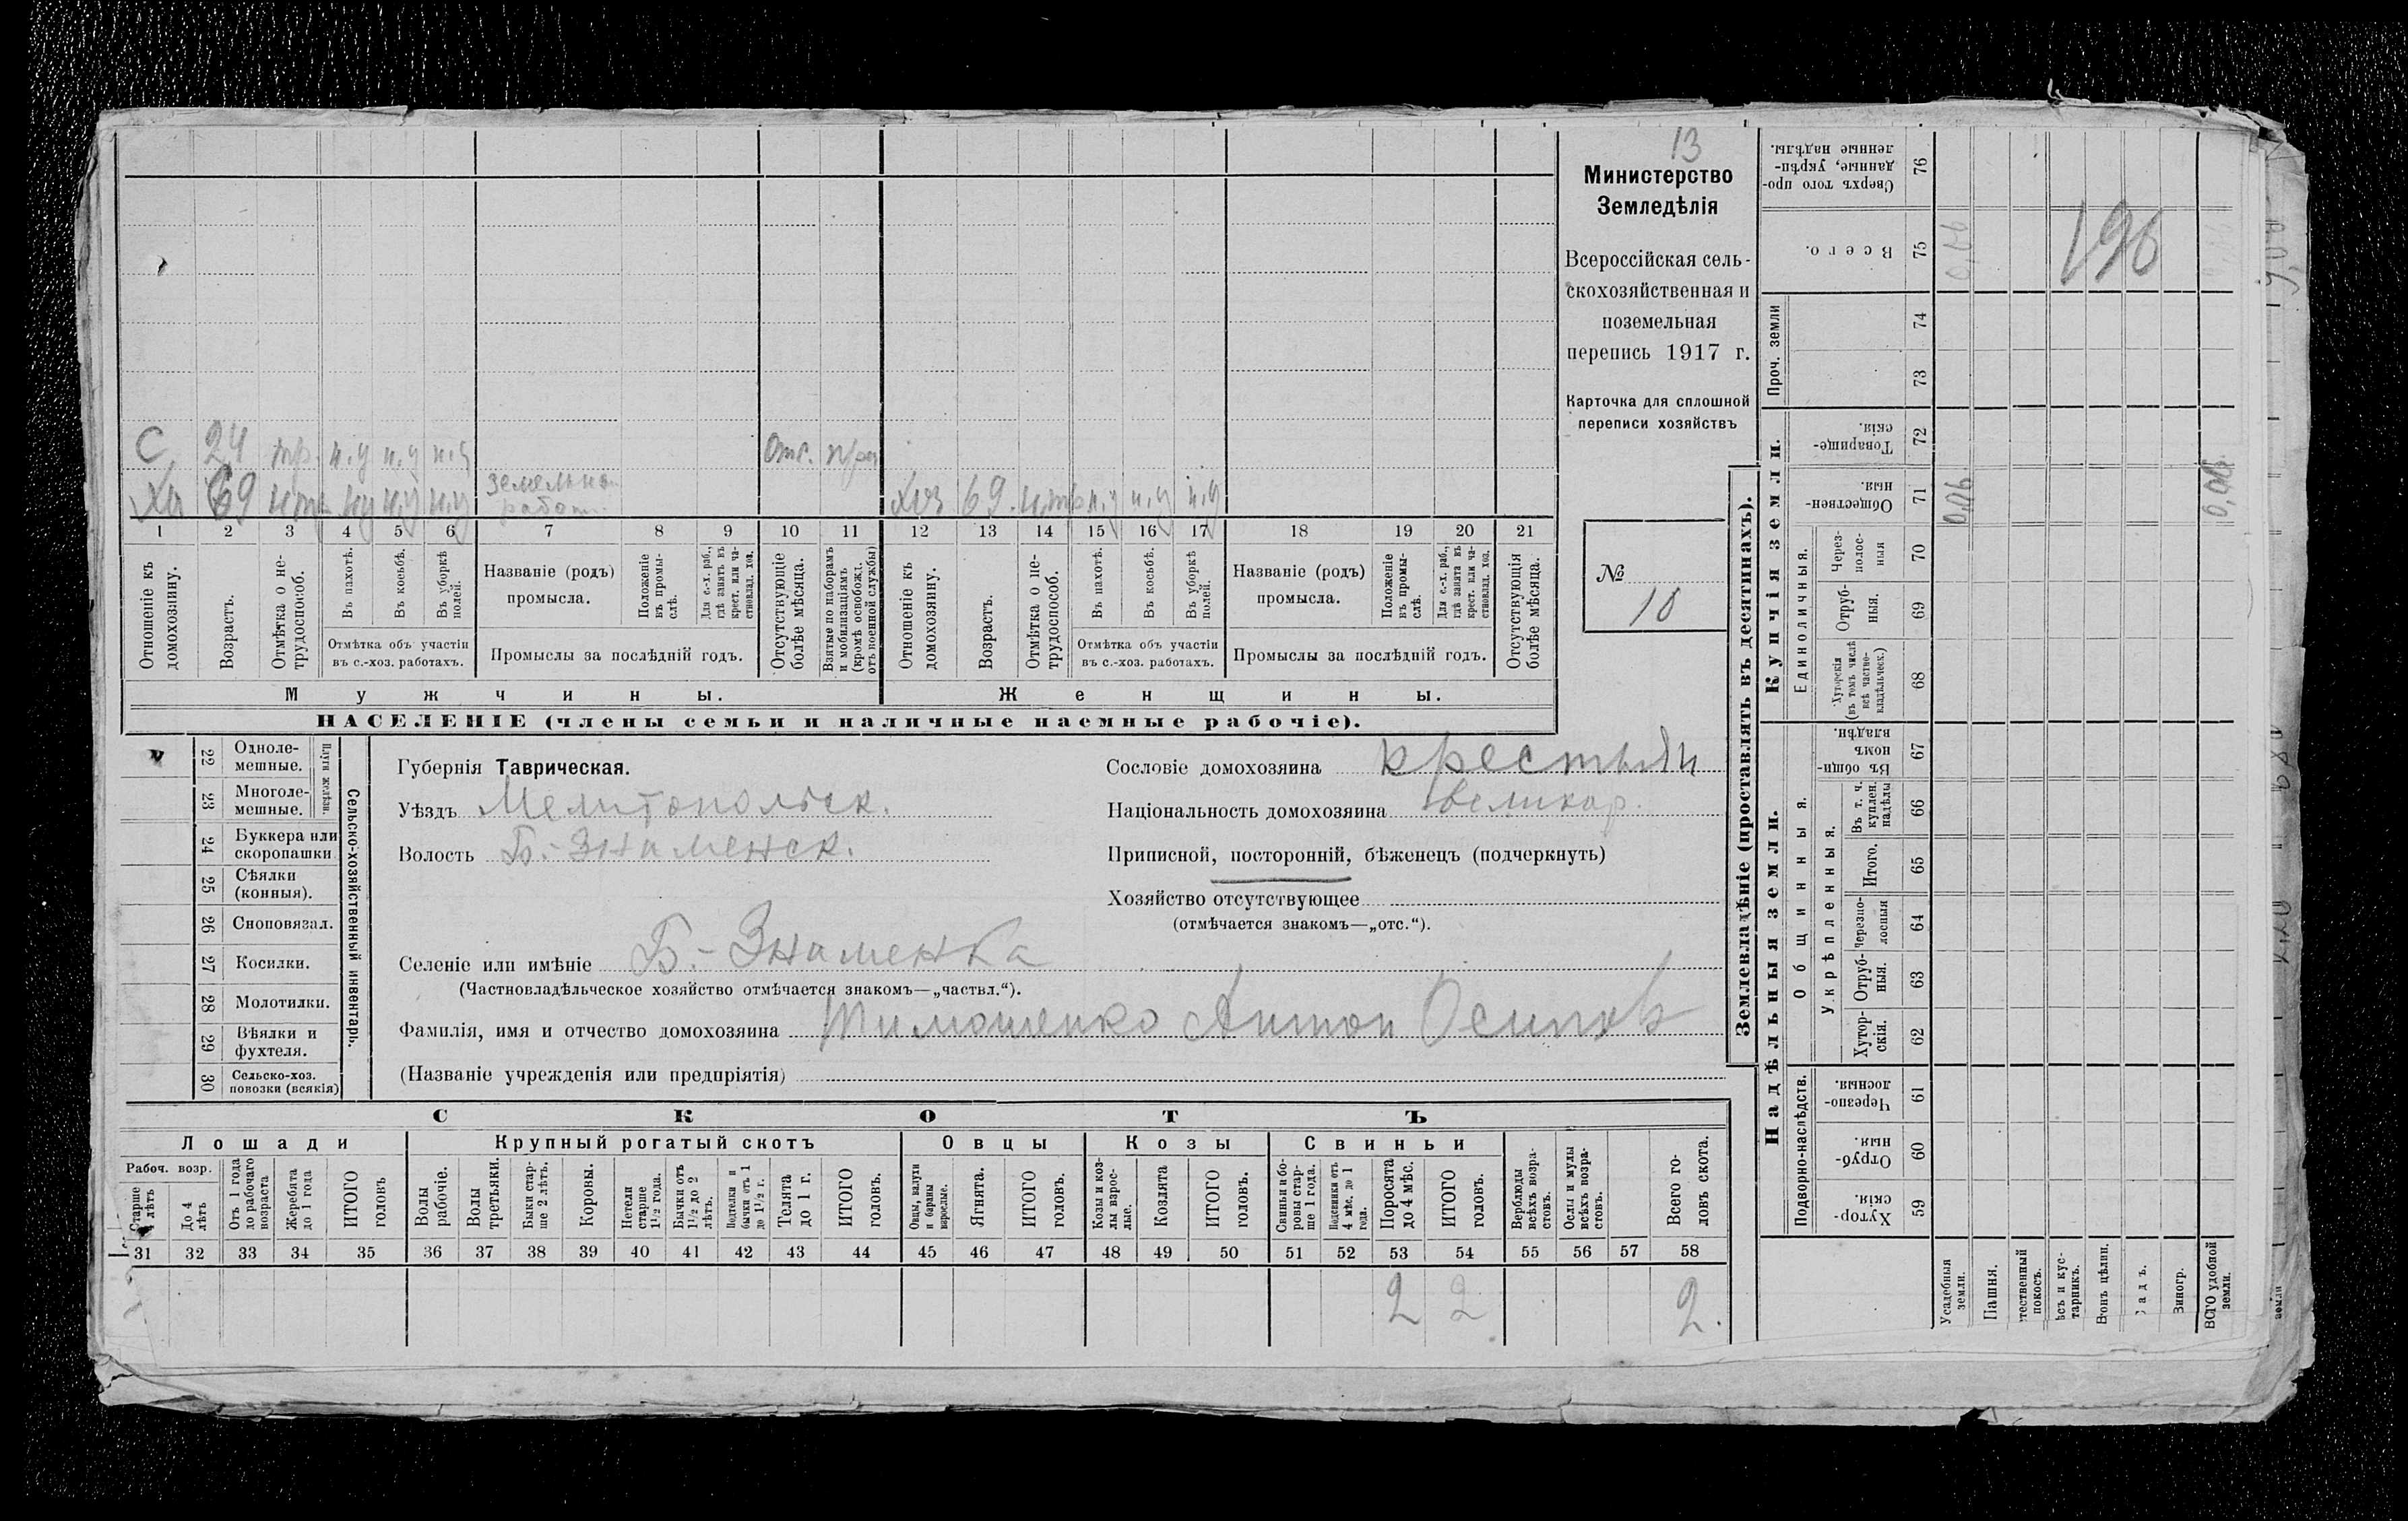 13
Министерство
Земледѣлія
Всероссійская сель-
скохозяйственная и
поземельная
перепись 1917 г.
Карточка для сплошной
переписи хозяйствъ
№
10
С 24 тр. н.у н.у н.у отс.
Хо 69 н.тр н.у н.у н.у земельн. работ. хоз 69 н.тр н.у н.у н.у
1 2 3 4 5 6 7 8 9 10 11 12 13 14 15 16 17 18 19 20 21
Отношеніе къ домохозяину.
Возрастъ.
Отмѣтка о не-трудоспособ.
Въ пахотѣ.
Въ косьбѣ.
Въ уборкѣ полей.
Отмѣтка объ участіи
въ с.-хоз. работахъ.
Названіе (родъ)
промысла.
Положеніе въ промы-слѣ.
Для с.-х. раб., гдѣ занятъ въ крест. или ча-ствовлад. хоз.
Промыслы за послѣдній годъ.
Отсутствующіе болѣе мѣсяца.
Взятые по наборамъ и мобилизаціямъ (кромѣ освобожд. отъ военной службы)
Отношеніе къ домохозяину.
Возрастъ.
Отмѣтка о не-трудоспособ.
Въ пахотѣ.
Въ косьбѣ.
Въ уборкѣ полей.
Отмѣтка объ участіи
въ с.-хоз. работахъ.
Названіе (родъ)
промысла.
Положеніе въ промы-слѣ.
Для с.-х. раб., гдѣ занята въ крест. или ча-ствовлад. хоз.
Промыслы за послѣдній годъ.
Отсутствующія болѣе мѣсяца.
Мужчины.
Женщины.
НАСЕЛЕНІЕ (члены семьи и наличные наемные рабочіе).
22 Одноле-мешные.
23 Многоле-мешные.
Плуги желѣзн.
24 Буккера или скоропашки
25 Сѣялки (конныя).
26 Сноповязал.
27 Косилки.
28 Молотилки.
29 Вѣялки и фухтеля.
30 Сельско-хоз. повозки (всякія)
Сельско-хозяйственный инвентарь.
Губернія Таврическая.
Уѣздъ Мелитопольск.
Волость Б.-Знаменск.
Сословіе домохозяина крестьян
Національность домохозяина великор.
Приписной, посторонній, бѣженецъ (подчеркнуть)
Хозяйство отсутствующее
(отмѣчается знакомъ—„отс.“).
Селеніе или имѣніе Б.-Знаменка
(Частновладѣльческое хозяйство отмѣчается знакомъ—„частвл.“).
Фамилія, имя и отчество домохозяина Тимошенко Антон Осипов
(Названіе учрежденія или предпріятія)
СКОТЪ
Лошади
Крупный рогатый скотъ
Овцы
Козы
Свиньи
Рабоч. возр.
Старше 4 лѣтъ
До 4 лѣтъ
Отъ 1 года до рабочаго возраста
Жеребята до 1 года
ИТОГО головъ
Волы рабочіе.
Волы третьяки.
Быки стар-ше 2 лѣтъ.
Коровы.
Нетели старше 1½ года.
Бычки отъ 1½ до 2 лѣтъ.
Подтелки и бычки отъ 1 до 1½ г.
Телята до 1 г.
ИТОГО головъ.
Овцы, валухи и бараны взрослые.
Ягнята.
ИТОГО головъ.
Козы и коз-лы взрос-лые.
Козлята
ИТОГО головъ.
Свиньи и бо-ровы стар-ше 1 года.
Подсвинки отъ 4 мѣс. до 1 года.
Поросята до 4 мѣс.
ИТОГО головъ.
Верблюды всѣхъ возра-стовъ.
Ослы и мулы всѣхъ возра-стовъ.
Всего го-ловъ скота.
31 32 33 34 35 36 37 38 39 40 41 42 43 44 45 46 47 48 49 50 51 52 53 54 55 56 57 58
2 2 2.
Землевладѣніе (проставлять въ десятинахъ).
Надѣльныя земли.
Купчія земли.
Проч. земли
Подворно-наслѣдств.
Общинныя.
Укрѣпленныя.
Единоличныя.
Сверхъ того про-данные, укрѣп-ленные надѣлы. 76
Всего. 75 0,06
196
74
73
Товарище-скія. 72
Обществен-ныя. 71 0,06 0,06
Через-полос-ныя 70
Отруб-ныя. 69
Хуторскія (въ томъ числѣ всѣ частно-владѣльческ.) 68
Въ общи-номъ владѣн. 67
Въ т. ч. куплен. надѣлы 66
Итого. 65
Черезпо-лосныя 64
Отруб-ныя. 63
Хутор-скія. 62
Черезпо-лосныя. 61
Отруб-ныя. 60
Хутор-скія. 59
Усадебныя земли.
Пашня.
тественный покосъ.
ѣсъ и кус-тарникъ.
тонъ цѣлин.
адъ.
Виногр.
ВСГО удобной земли.